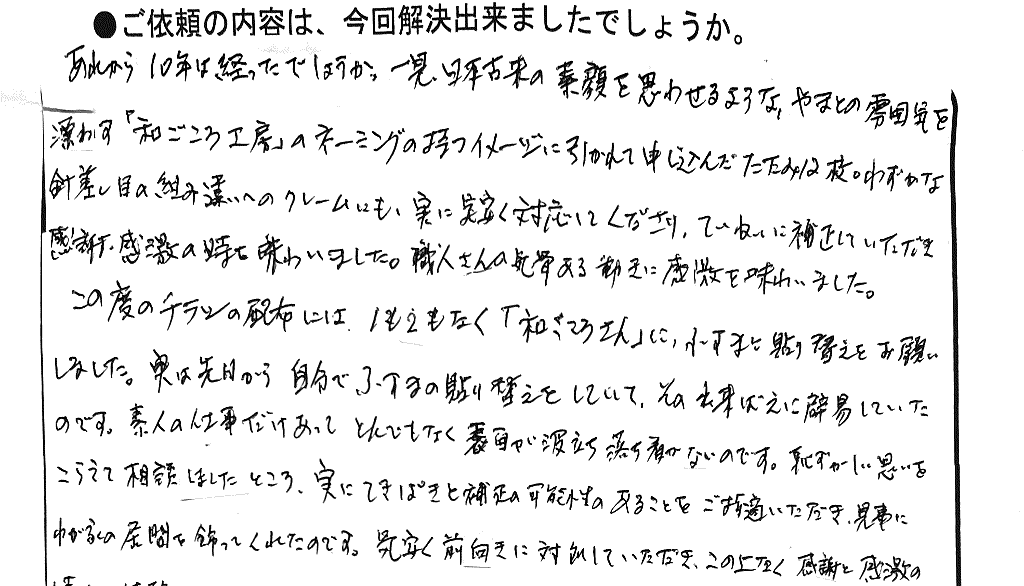 ●ご依頼の内容は、今回解決出来ましたでしょうか。
あれから10年は経ったでしょうか。一見、日本古来の素顔を思わせるような、やまとの雰囲気を
漂わす「和ごころ工房」のネーミングの持つイメージに引かれて申し込んだたたみ12枚。わずかな
針差し目の組み違いへのクレームにも、実に気安く対応してくださり、ていねいに補正していただき
感謝、感激の時を味わいました。職人さんの気骨ある動きに感激を味わいました。
この度のチラシの配布には、1も2もなく「和ごころさん」に、ふすまと貼り替えをお願い
しました。実は先日から自分でふすまの貼り替えをしていて、その出来ばえに辟易していた
のです。素人の仕事だけあってとんでもなく表面が波立ち落ち着かないのです。恥ずかしい思いを
こらえて相談しましたところ、実にてきぱきと補正の可能性のあることをご指摘いただき、見事に
わが家の居間を飾ってくれたのです。気安く前向きに対処していただき、この上なく感謝と感激の